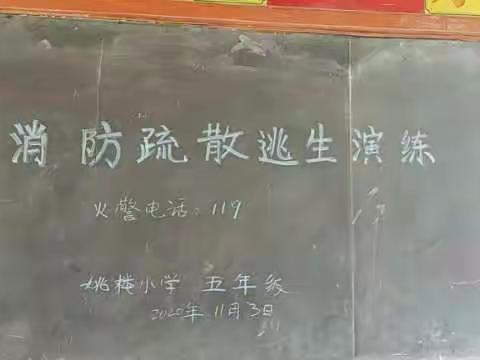 消防疏散逃生演练
火警电话：119
姚楼小学 五年级
2020年11月3日